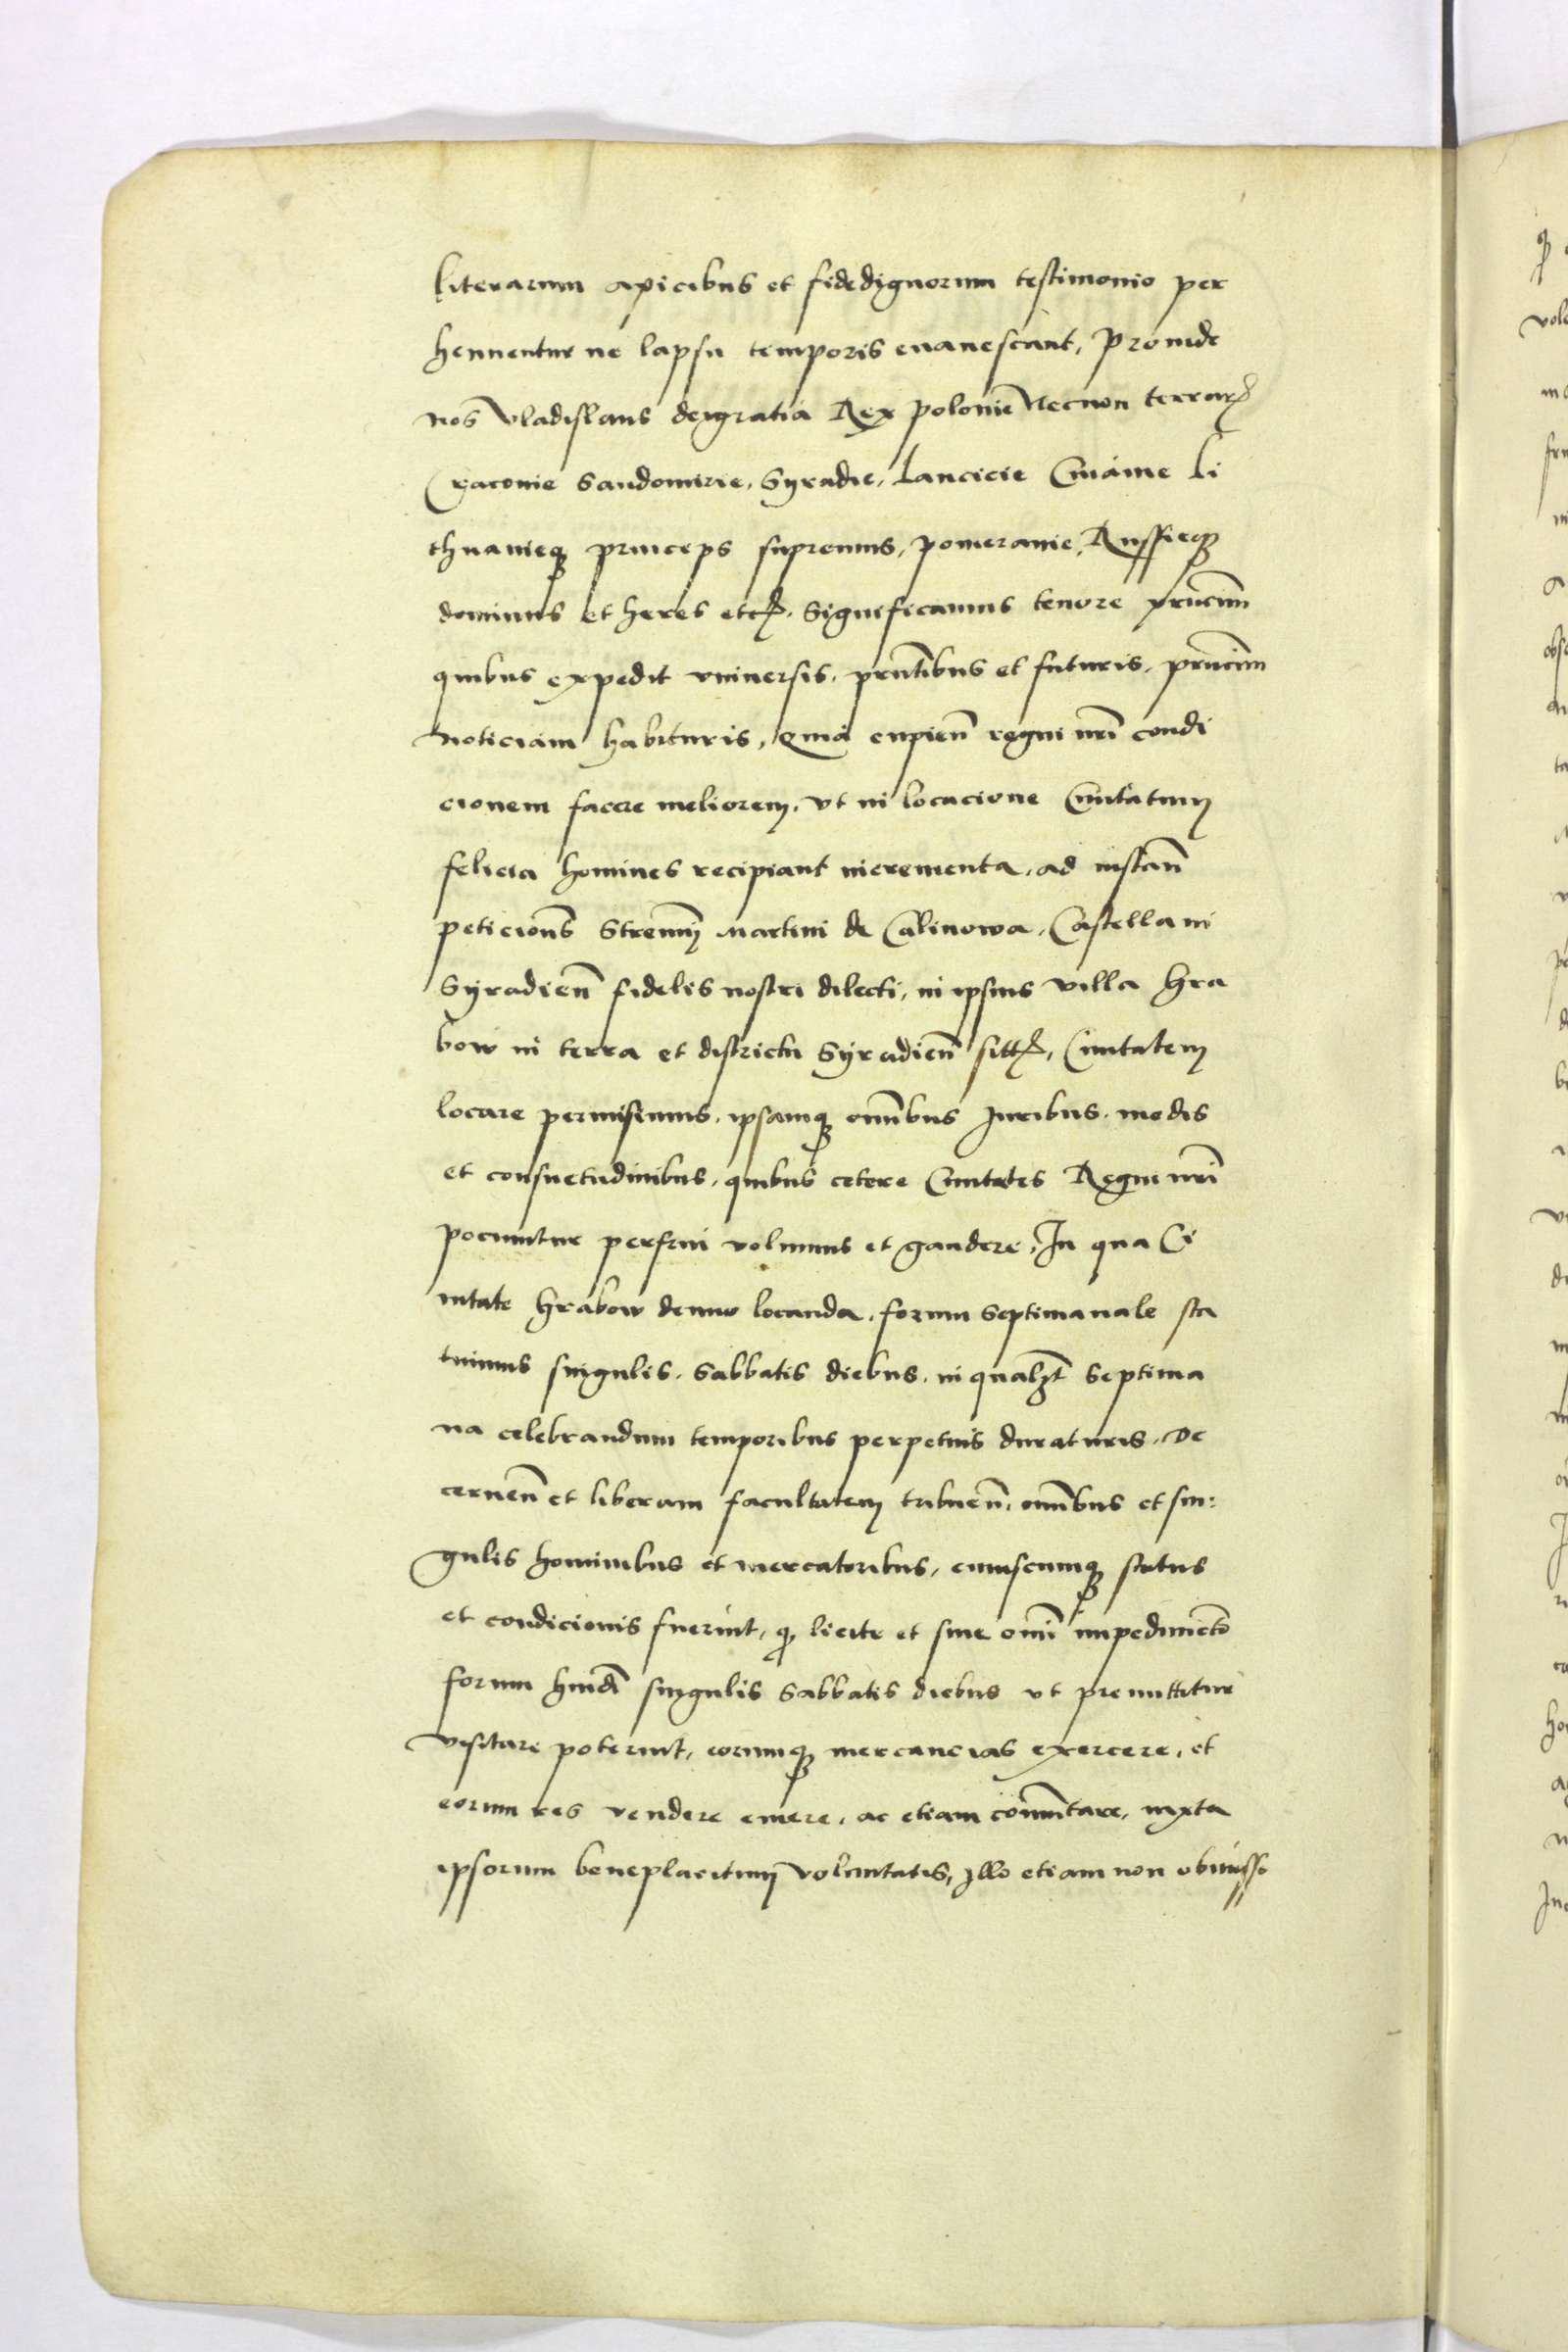 literarum apicibus et fidedignorum testimonio per
hennentur ne lapsu temporis euanescant, Proinde
nos Vladislaus deigratia Rex polonie Necnon terrarꝝ
Cracouie Sandomirie, Syradie, Lancicie Cuiauie Li
thuanieqꝫ princeps supremus, pomeranie, Russieqꝫ
dominus et heres etcꝝ. Significamus tenore pñcium
quibus expedit vniuersis, pñtibus et futuris, pñcium
noticiam habituris, Quia cupieñ regni nr̄i condi
cionem facere meliorem, vt in locacione Ciuitatum
felicia homines recipiant incrementa, ad instañ
peticiones Strennui Martini de Calinowa, Castellani
Syradień fidelis nostri dilecti, in ipsius villa Hra
bow in terra et districtu Syradień sittꝝ, Ciuitatem
locare permisimus, ipsamqꝫ om̄ibus Juribus, modis
et consuetudinibus, quibus cetere Ciuitates Regni nr̄i
pociuntur perfrui volumus et gaudere, In qua Ci
uitate Hrabow denuo locanda, forum septimanale sta
tuimus singulis, Sabbatis diebus, in qualꝫt septima
na celebrandum temporibus perpetuis duraturis, De
cerneñ et liberam facultatem tribueñ, om̄ibus et sin:
gulis hominibus et mercatoribus, cuiuscumqꝫ status
et condicionis fuerint, qꝫ licite et sine om̄i impedimēto
forum hmōi singulis Sabbatis diebus vt premittitur
visitare poterint, eorumqꝫ mercancias exercere, et
eorum res vendere emere, ac etiam com̄utare, iuxta
ipsorum beneplacitum voluntatis, Illo etiam non obmisso